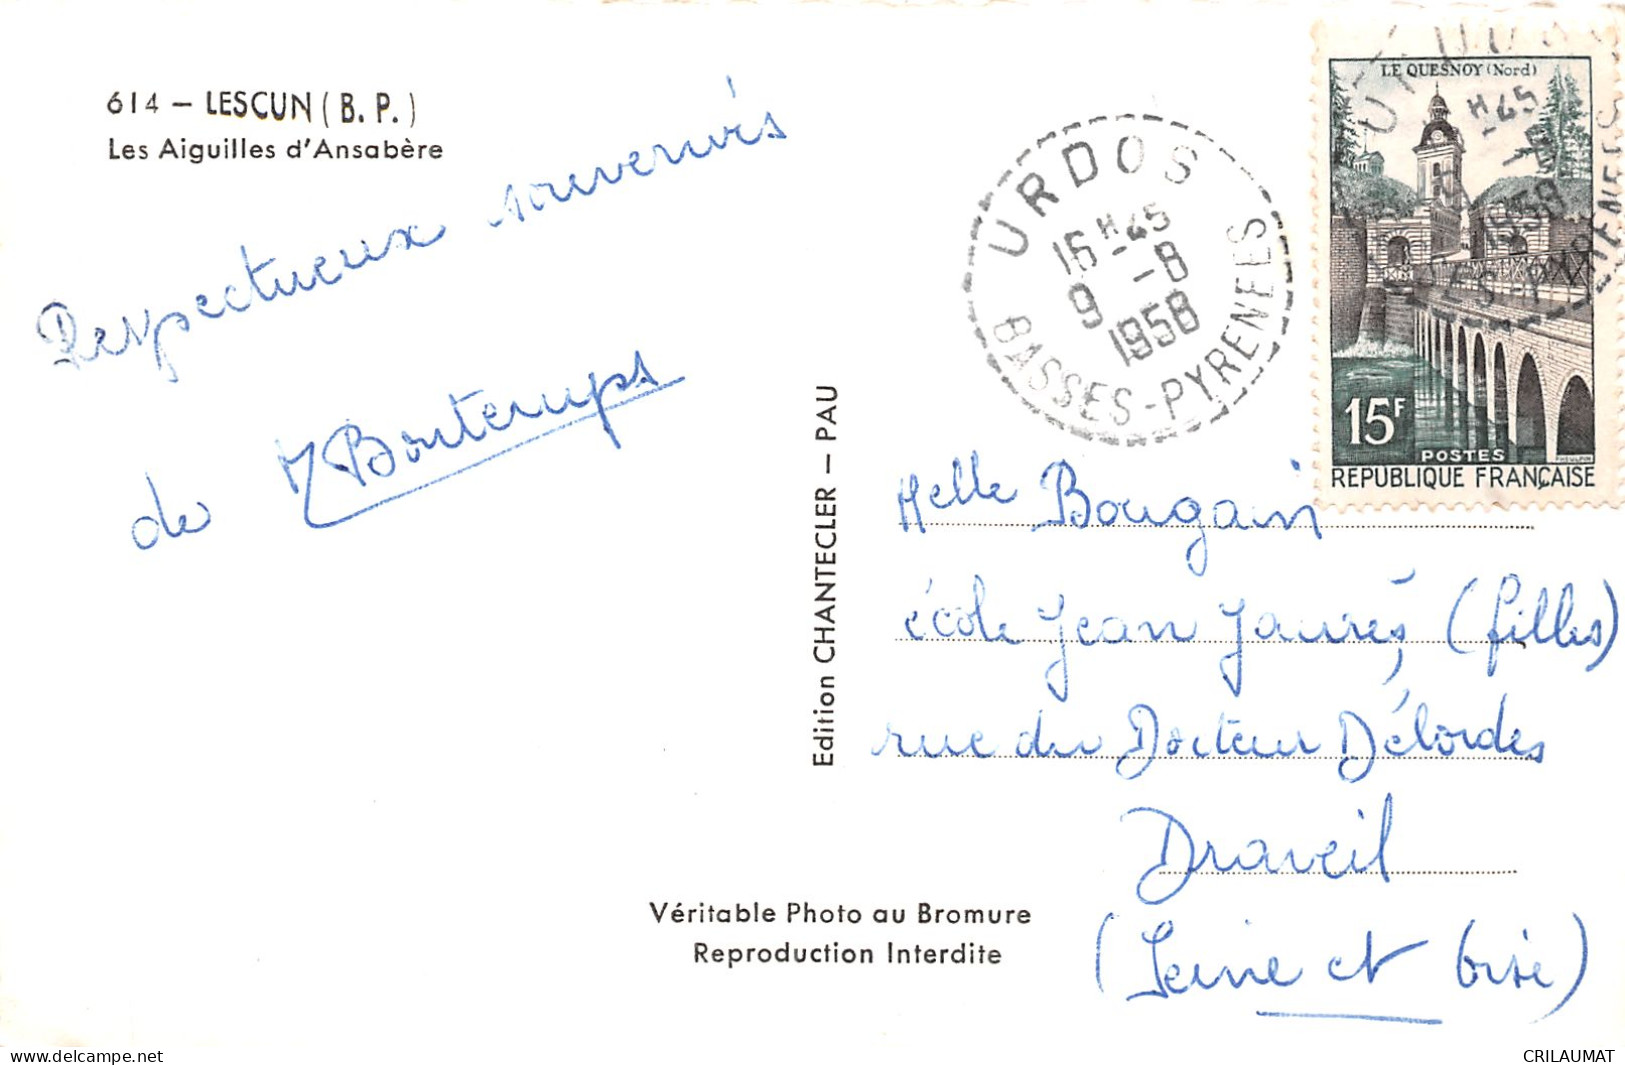 614 – LESCUN (B. P.)
Les Aiguilles d'Ansabère
Respectueux souvenirs
de M Bontemps
Edition CHANTECLER – PAU
Véritable Photo au Bromure
Reproduction Interdite
URDOS
16H45
9 -8
1958
BASSES-PYRENEES
LE QUESNOY (Nord)
15F
POSTES
REPUBLIQUE FRANÇAISE
Melle Bougain
école Jean Jaurès (filles)
rue du Docteur Délordes
Draveil
(Seine et Oise)
www.delcampe.net
CRILAUMAT